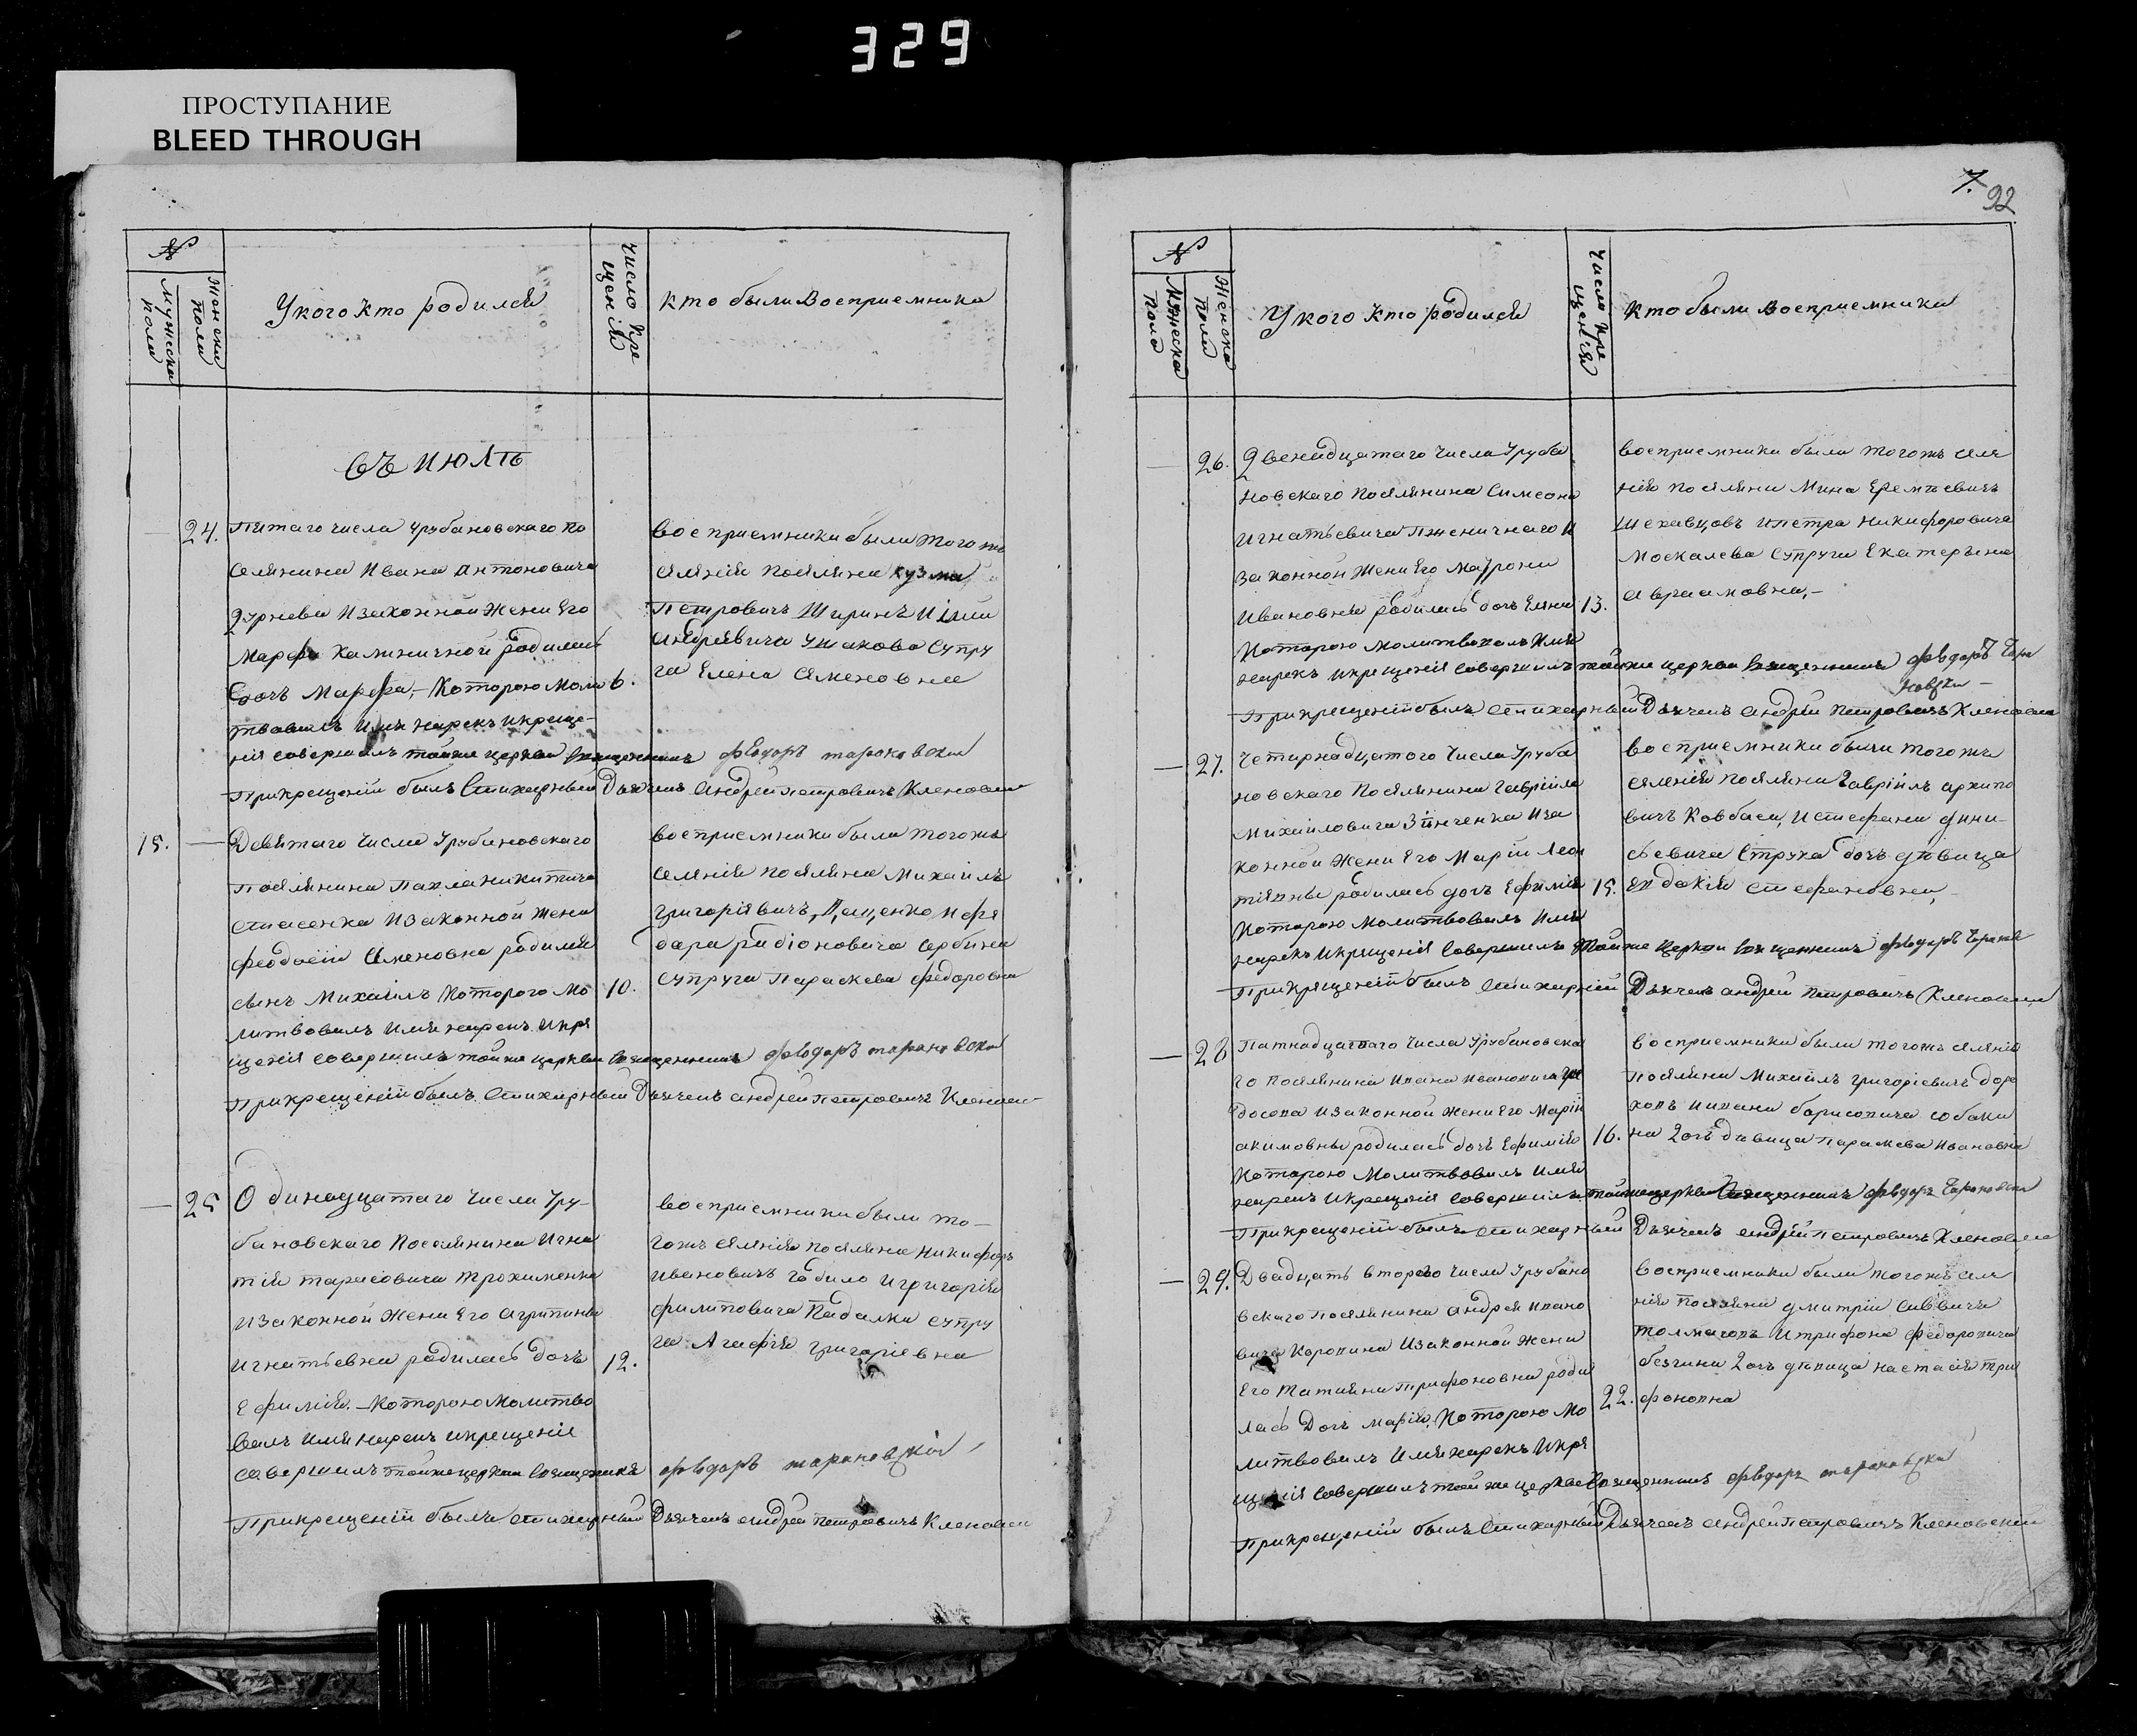 329
ПРОСТУПАНИЕ
BLEED THROUGH
№
Женска пола
Мужеска пола
У кого кто родился
Число Крещенія
Кто были Восприемники
Въ июлѣ
24. Пятаго числа Урубановскаго по
селянина Ивана Антоновича
Дурнева И законной жени Его
Марфи Калиничной родилась
дочь Марфа,- Которою Моли
твовалъ Имя нарекъ и креще-
нія совершилъ тойже церкви Священникъ Фѣодоръ Тарановски
При крещеніи былъ Стихарный Дьячекъ Андрей Петровичъ Кленовски
6.
восприемники были тогожъ
селенія поселяни Кузма
Петровичъ Ширинъ и Iлии
Андреевича Ушакова Супру
га Елена Семеновна
15. Девятаго числа Урубановскаго
Поселянина Павла Никитича
Стасенка И законной жени
Феодосіи Семеновна родился
сынъ Михаилъ Которого Мо
литвовалъ Имя нарекъ и кре
щенія совершилъ тойже церкви Священникъ Фѣодоръ Тарановски
При крещеніи былъ Стихарный Дьячекъ Андрей Петровичъ Кленовски
10.
восприемники были тогожъ
селенія поселяни Михаилъ
Григоріевичъ и Фео
дора Радіоновича Сербина
Супруга Параскева Федоровна
25 Одинадцатаго числа Уру-
бановскаго Поселянина Игна
тія Тарасовича Трохименка
И законной жени Его Агрипины
Игнатьевна родилась дочь
Ефимія.- Которою Молитво
валъ Имя нарекъ и крещеніе
совершилъ тойже церкви Священникъ Фѣодоръ Тарановскій
При крещеніи былъ Стихарный Дьячекъ Андрей Петровичъ Кленовски
12.
восприемники были то-
гожъ селенія поселяне Никифоръ
Ивановичъ и Григорія
Филиповича Падалки Супру
га Агафія Григоріевна
7.
92
№
Женска пола
Мужеска пола
У кого кто родился
Число Крещенія
Кто были Восприемники
26. Двенадцатаго числа Уруба
новскаго Поселянина Симеона
Игнатьевича Пшеничнаго И
законной жени Его Матрони
Ивановня родилась дочь Елена
Которою Молитвовалъ Имя
нарекъ и крещенія совершилъ тойже церкви Священникъ Фѣодоръ Тара
новски
При крещеніи былъ Стихарный Дьячекъ Андрей Петровичъ Кленовски
13.
восприемники были тогожъ селе
нія поселяни Мина Еремѣевичъ
Шехавцовъ и Петра Никифоровича
Москалева Супруга Екатерина
Авраамовна,-
27. Четирнадцатого числа Уруба
новскаго Поселянина Гавріила
Михаиловича Зѣнченка И за
конной жени Его Маріи Леон
тіевны родилась дочь Ефимія
Которою Молитвовалъ Имя
нарекъ и крещенія совершилъ тойже церкви Священникъ Фѣодоръ Таранов
При крещеніи былъ Стихарній Дьячекъ Андрей Петровичъ Кленовски
15.
восприемники были тогожъ
селенія поселяни Гавріилъ Архипо
вичъ Ковбаса, и Стефана
Струка дочь дѣвица
Евдокія Стефановна,
28 Патнадцатаго числа Урубановска
го поселянина Ивана Ивановича
И законной жени Его Маріи
Акимовны родилась дочь Ефимія
Которою Молитвовалъ Имя
нарекъ и крещенія совершилъ тойже церкви Священникъ Фѣодоръ Тарановски
При крещеніи былъ Стихарный Дьячекъ Андрей Петровичъ Кленовски
16.
восприемники были тогожъ селенія
поселяни Михаилъ Григоріевичъ Доро
ховъ и Ивана Борисовича Собаки
на дочь дѣвица Параскева Ивановна
29. Двадцать второго числа Урубано
вскаго поселянина Андрея Ивано
вича Каропина И законной жени
Его Татияни Трифоновни роди
лась дочь Марія, Которою Мо
литвовалъ Имя нарекъ и кре
щенія совершилъ тойже церкви Священникъ Фѣодоръ Тарановски
При крещеніи былъ Стихарный Дьячекъ Андрей Петровичъ Кленовски
22.
восприемники были тогожъ селе
нія поселяни Дмитрій Саввичъ
Толмаговъ и Трифона Федоровича
Безгина дочь дѣвица Настасія Три
фоновна